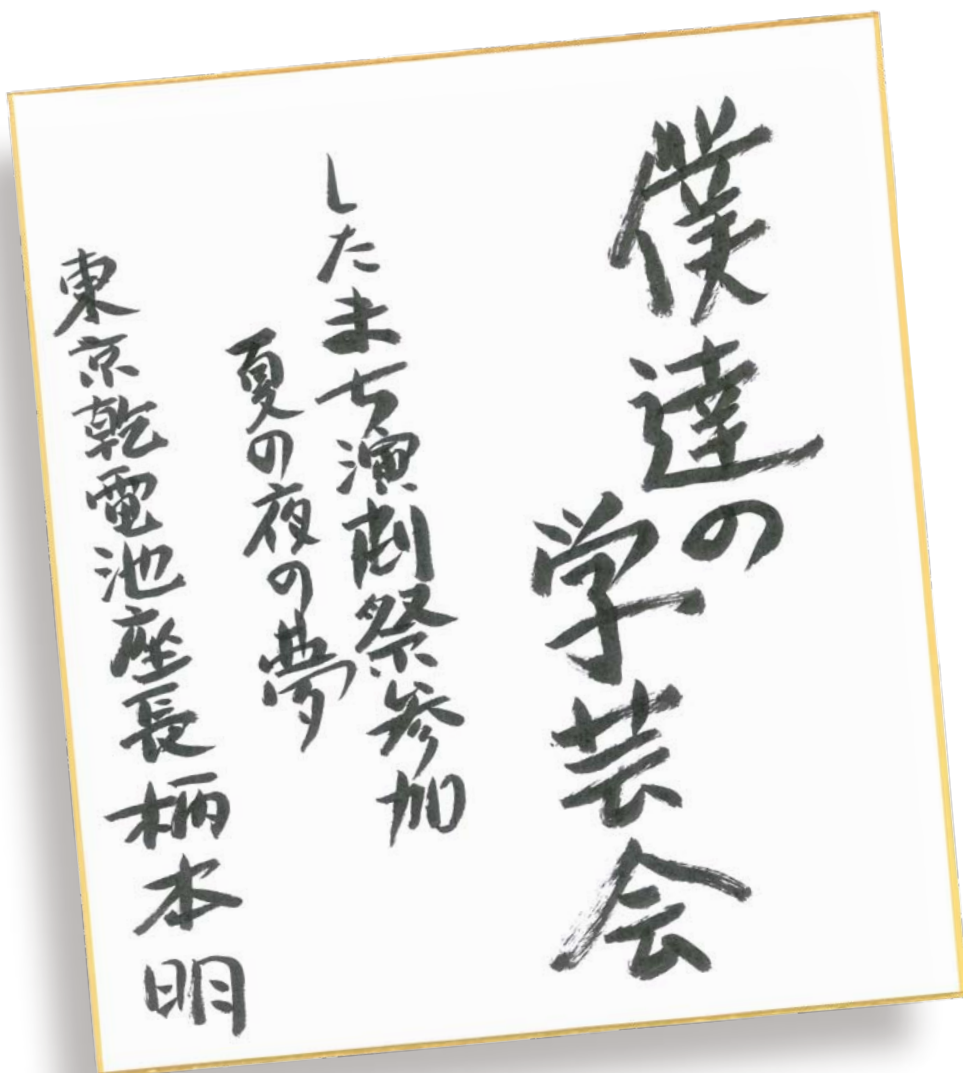 僕達の
学芸会
したまち演劇祭参加
夏の夜の夢
東京乾電池座長柄本明